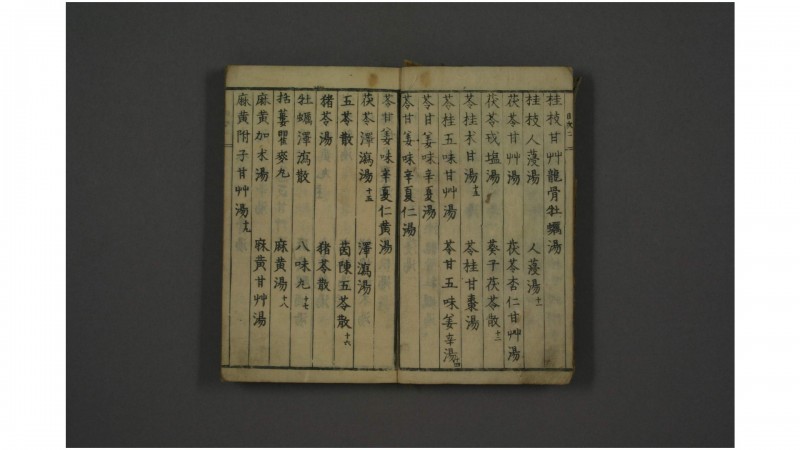 桂枝甘艸龍骨牡蠣湯
桂枝人薓湯 人薓湯十一
茯苓甘艸湯 茯苓杏仁甘艸湯
茯苓戎塩湯 葵子茯苓散十二
苓桂朮甘湯 苓桂甘棗湯
苓桂五味甘艸湯 苓甘五味姜辛湯十四
苓甘姜味辛夏湯
苓甘姜味辛夏仁湯
苓甘姜味辛夏仁黄湯
茯苓澤瀉湯十五 澤瀉湯
五苓散 茵陳五苓散十六
猪苓湯 猪苓散
牡蠣澤瀉散 八味丸十七
括蔞瞿麥丸 麻黄湯十八
麻黄加朮湯 麻黄甘艸湯
麻黄附子甘艸湯十九